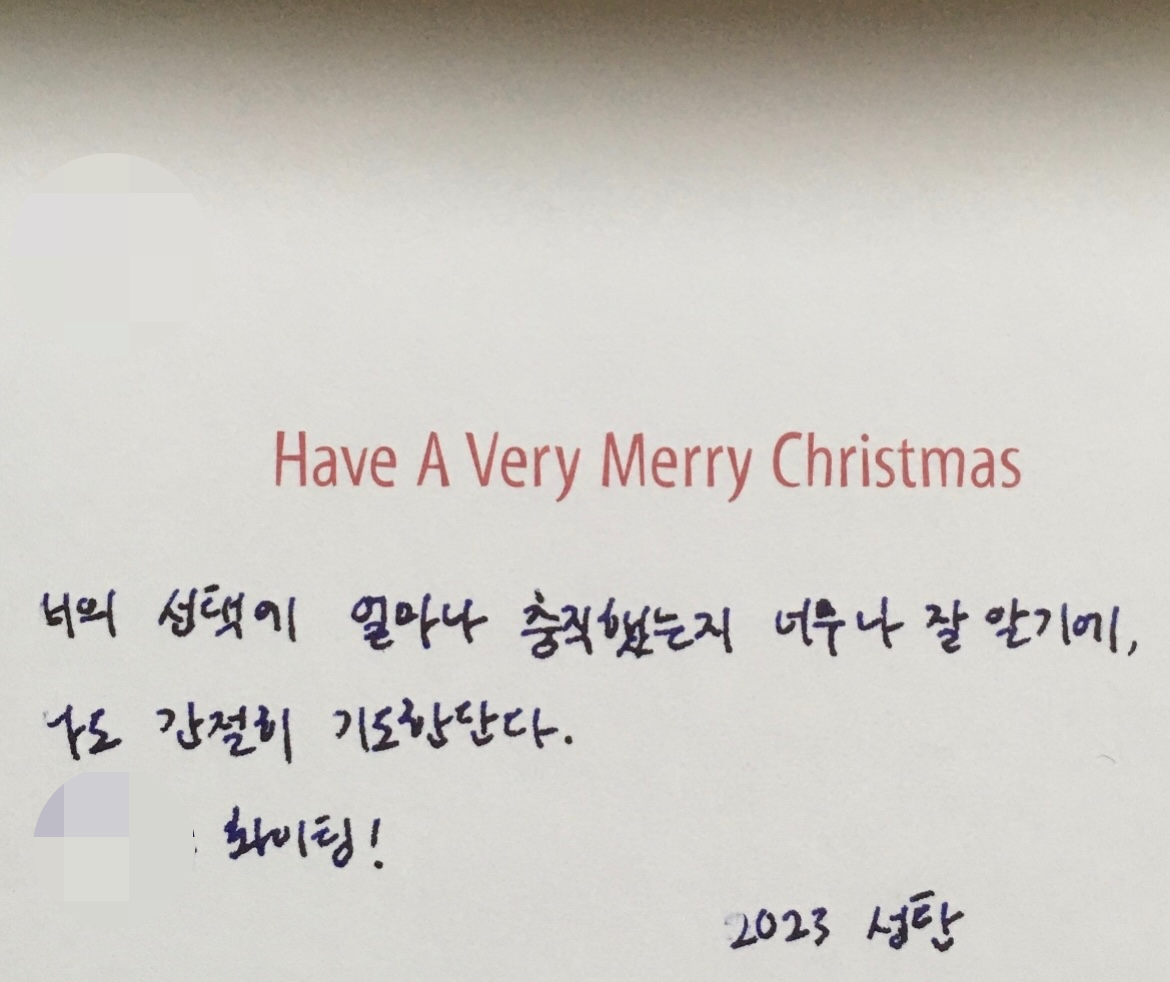 Have A Very Merry Christmas
너의 선택에 얼마나 충직했는지 너무나 잘 알기에,
나도 간절히 기도한단다.
화이팅!
2023 성탄